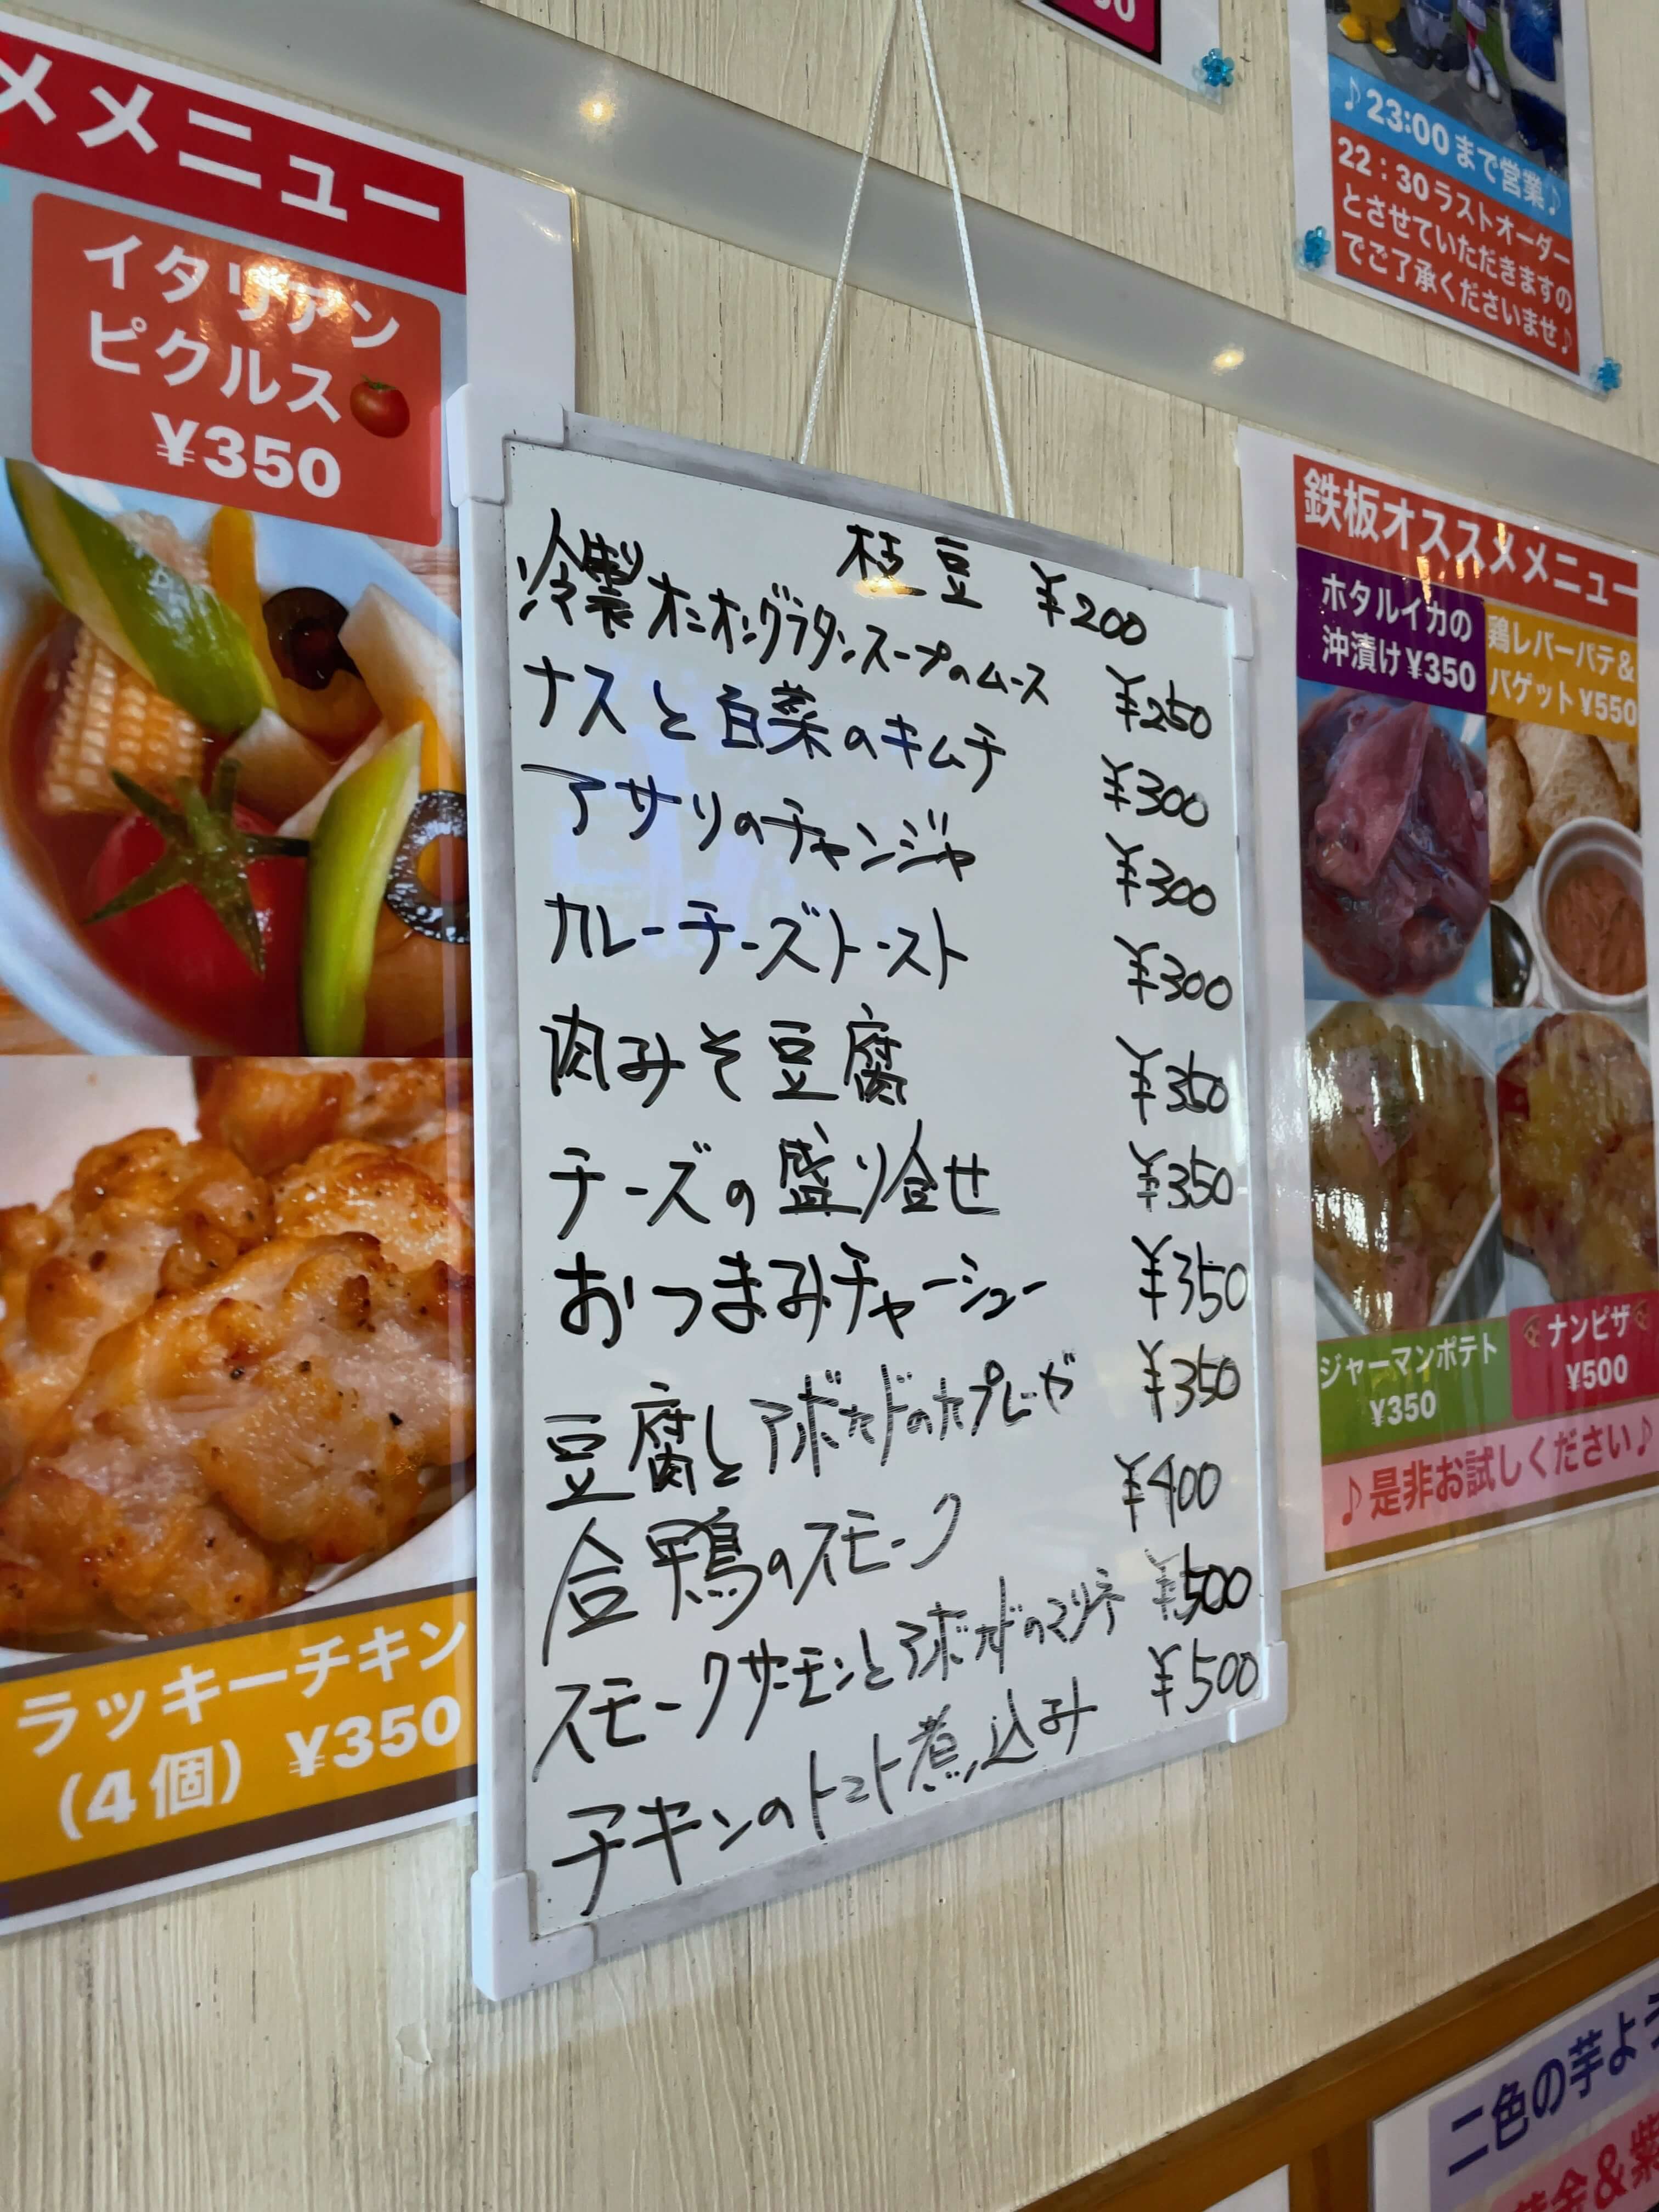 メメニュー
イタリアン
ピクルス
¥350
ラッキーチキン
(4個) ¥350
枝豆 ¥200
冷製オニオングラタンスープのムース ¥250
ナスと白菜のキムチ ¥300
アサリのチャンジャ ¥300
カレーチーズトースト ¥300
肉みそ豆腐 ¥350
チーズの盛り合せ ¥350
おつまみチャーシュー ¥350
豆腐とアボカドのカプレーゼ ¥350
合鴨のスモーク ¥400
スモークサーモンとアボカドのマリネ ¥500
チキンのトマト煮込み ¥500
♪23:00まで営業♪
22:30ラストオーダー
とさせていただきますの
でご了承くださいませ♪
鉄板オススメメニュー
ホタルイカの
沖漬け¥350
鶏レバーパテ&
バゲット¥550
ジャーマンポテト
¥350
ナンピザ
¥500
♪是非お試しください♪
二色の芋よ